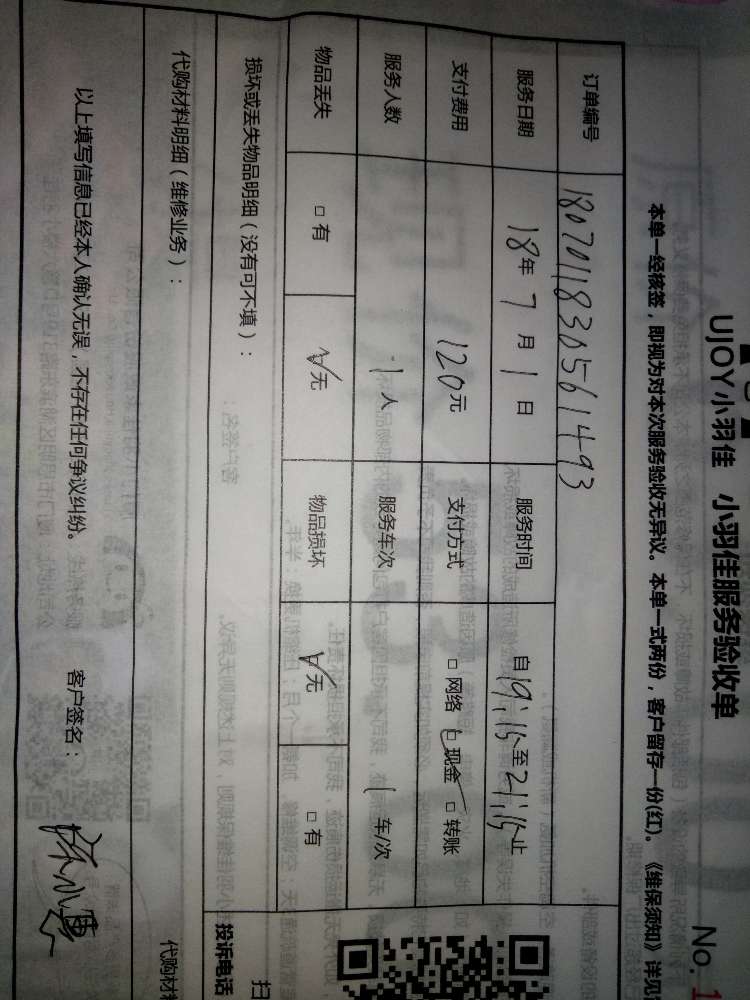 UJOY小羽佳 小羽佳服务验收单
No. 1
本单一经核签，即视为对本次服务验收无异议。本单一式两份，客户留存一份(红)。《维保须知》详见
订单编号 180701183056 1493
服务日期 18年 7月 1日 服务时间 自19:15至21:15止
支付费用 120元 支付方式 □网络 □现金 □转账
服务人数 1人 服务车次 1车/次
物品丢失 □有 ☑无 物品损坏 ☑无 □有
损坏或丢失物品明细（没有可不填）：
投诉电话
扫
代购材料明细（维修业务）：
代购材料
以上填写信息已经本人确认无误，不存在任何争议纠纷。 客户签名：